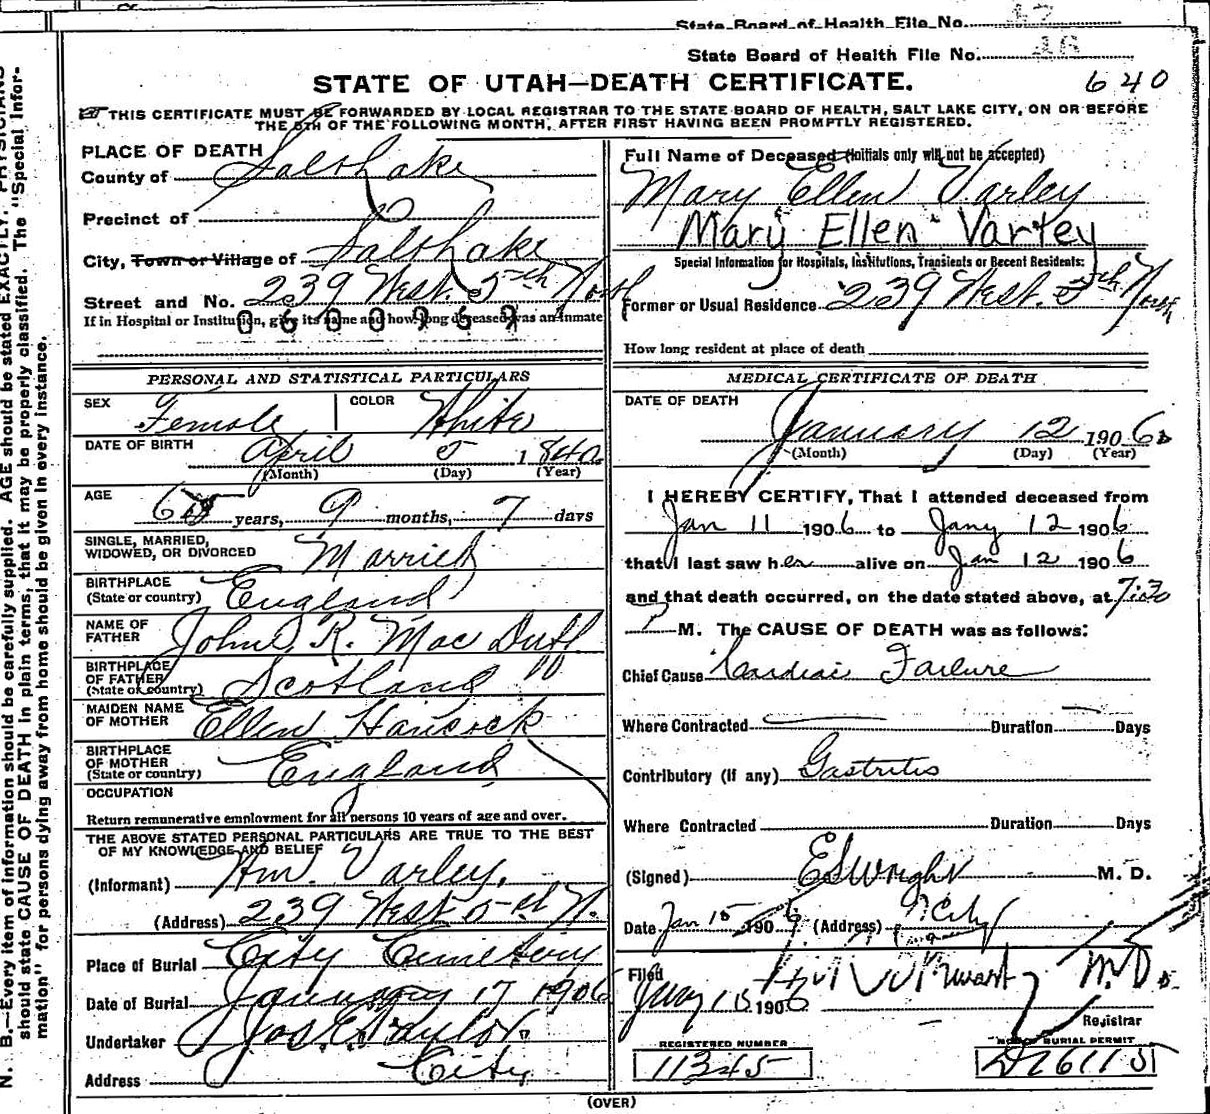 State Board of Health File No. 47
State Board of Health File No. 46
STATE OF UTAH—DEATH CERTIFICATE. 640
THIS CERTIFICATE MUST BE FORWARDED BY LOCAL REGISTRAR TO THE STATE BOARD OF HEALTH, SALT LAKE CITY, ON OR BEFORE
THE 5TH OF THE FOLLOWING MONTH, AFTER FIRST HAVING BEEN PROMPTLY REGISTERED.
PLACE OF DEATH
County of Salt Lake
Precinct of
City, Town or Village of Salt Lake
Street and No. 239 West 5th North
If in Hospital or Institution, give its name and how long deceased was an inmate
0600969
PERSONAL AND STATISTICAL PARTICULARS
SEX Female COLOR White
DATE OF BIRTH April 5 1840
(Month) (Day) (Year)
AGE 65 years, 9 months, 7 days
SINGLE, MARRIED,
WIDOWED, OR DIVORCED Married
BIRTHPLACE
(State or country) England
NAME OF
FATHER John R. Mac Duff
BIRTHPLACE
OF FATHER
(State or country) Scotland
MAIDEN NAME
OF MOTHER Ellen Hancock
BIRTHPLACE
OF MOTHER
(State or country) England
OCCUPATION
Return remunerative employment for all persons 10 years of age and over.
THE ABOVE STATED PERSONAL PARTICULARS ARE TRUE TO THE BEST
OF MY KNOWLEDGE AND BELIEF
(Informant) Wm. Varley,
(Address) 239 West 5th N.
Place of Burial City Cemetery
Date of Burial January 17 1906
Undertaker Jos. E. Taylor
Address City
Full Name of Deceased (Initials only will not be accepted)
Mary Ellen Varley
Mary Ellen Varley
Special Information for Hospitals, Institutions, Transients or Recent Residents:
Former or Usual Residence 239 West 5th North
How long resident at place of death
MEDICAL CERTIFICATE OF DEATH
DATE OF DEATH
January 12 1906
(Month) (Day) (Year)
I HEREBY CERTIFY, That I attended deceased from
Jan 11 1906 to Jany 12 1906
that I last saw her alive on Jan 12 1906
and that death occurred, on the date stated above, at 7:30
P M. The CAUSE OF DEATH was as follows:
Chief Cause Cardiac Failure
Where Contracted Duration Days
Contributory (if any) Gastritis
Where Contracted Duration Days
(Signed) E S Wright M. D.
Date Jan 15 1906 (Address) City
Filed M.D.
Jany 1906
Registrar
REGISTERED NUMBER
11345
BURIAL PERMIT
D26115
(OVER)
N. B.—Every item of information should be carefully supplied. AGE should be stated EXACTLY. PHYSICIANS
should state CAUSE OF DEATH in plain terms, that it may be properly classified. The "Special Infor-
mation" for persons dying away from home should be given in every instance.